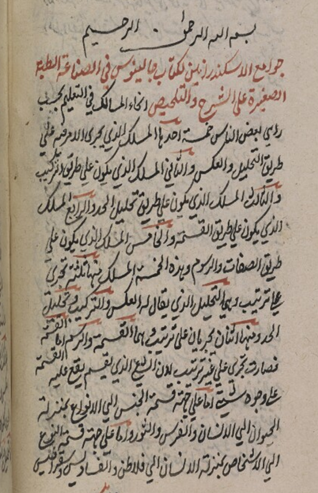 بسم الله الرحمن الرحيم
جوامع الاسكندرانيين لكتاب جالينوس في الصناعة الطبية
الصغيرة على الشرح والتلخيص انحاء المسالك في التعليم بحسب
راي بعض الناس خمسة احدها المسلك الذي يجري الامر فيه على
طريق التحليل والعكس والثاني المسلك الذي يكون على طريق التركيب
والثالث المسلك الذي يكون على طريق تحليل الحد والرابع المسلك
الذي يكون على طريق القسمة والخامس المسلك الذي يكون على
طريق الصفات والرسوم وهذه الخمسة المسالك منها ثلثة تجري
على ترتيب وهي التحليل الذي يقال له العكس والتركيب وتحليل
الحد ومنها اثنان يجريان على ترتيب هما القسمة والرسم اما القسمة
فصارت تجري على غير ترتيب لان الشيء الذي يقسم يقع عليه القسمة
على وجوه شتى اما على جهة قسمة الجنس الى الانواع بمنزلة
الحيوان الى الانسان والفرس والثور واما على جهة قسمة النوع
الى الاشخاص بمنزلة الانسان الى فلاطن